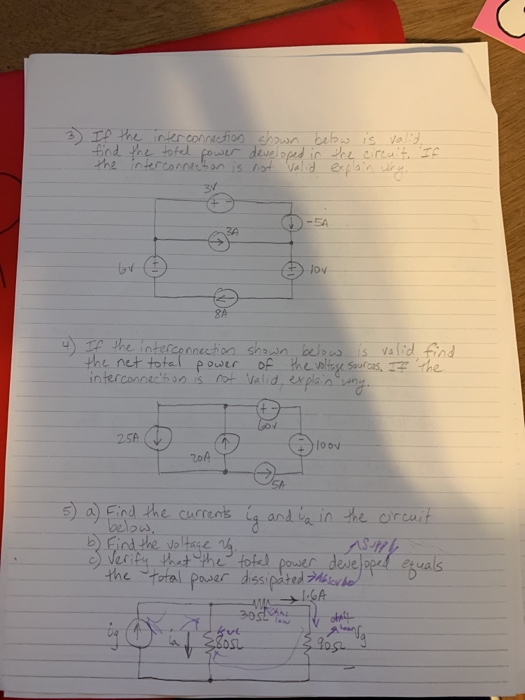 3) If the interconnection shown below is valid
find the total power developed in the circuit. If
the interconnection is not valid explain why.
3V
+ -
-5A
3A
6V
+
-
+
-
10V
8A
4) If the interconnection shown below is valid, find
the net total power of the voltage sources. If the
interconnection is not valid, explain why.
+ -
60V
25A
20A
100V
5A
5) a) Find the currents ig and ia in the circuit
below.
b) Find the voltage vg.
c) Verify that the total power developed equals
the total power dissipated
1.6A
30Ω
ig
ia
80Ω
90Ω
vg